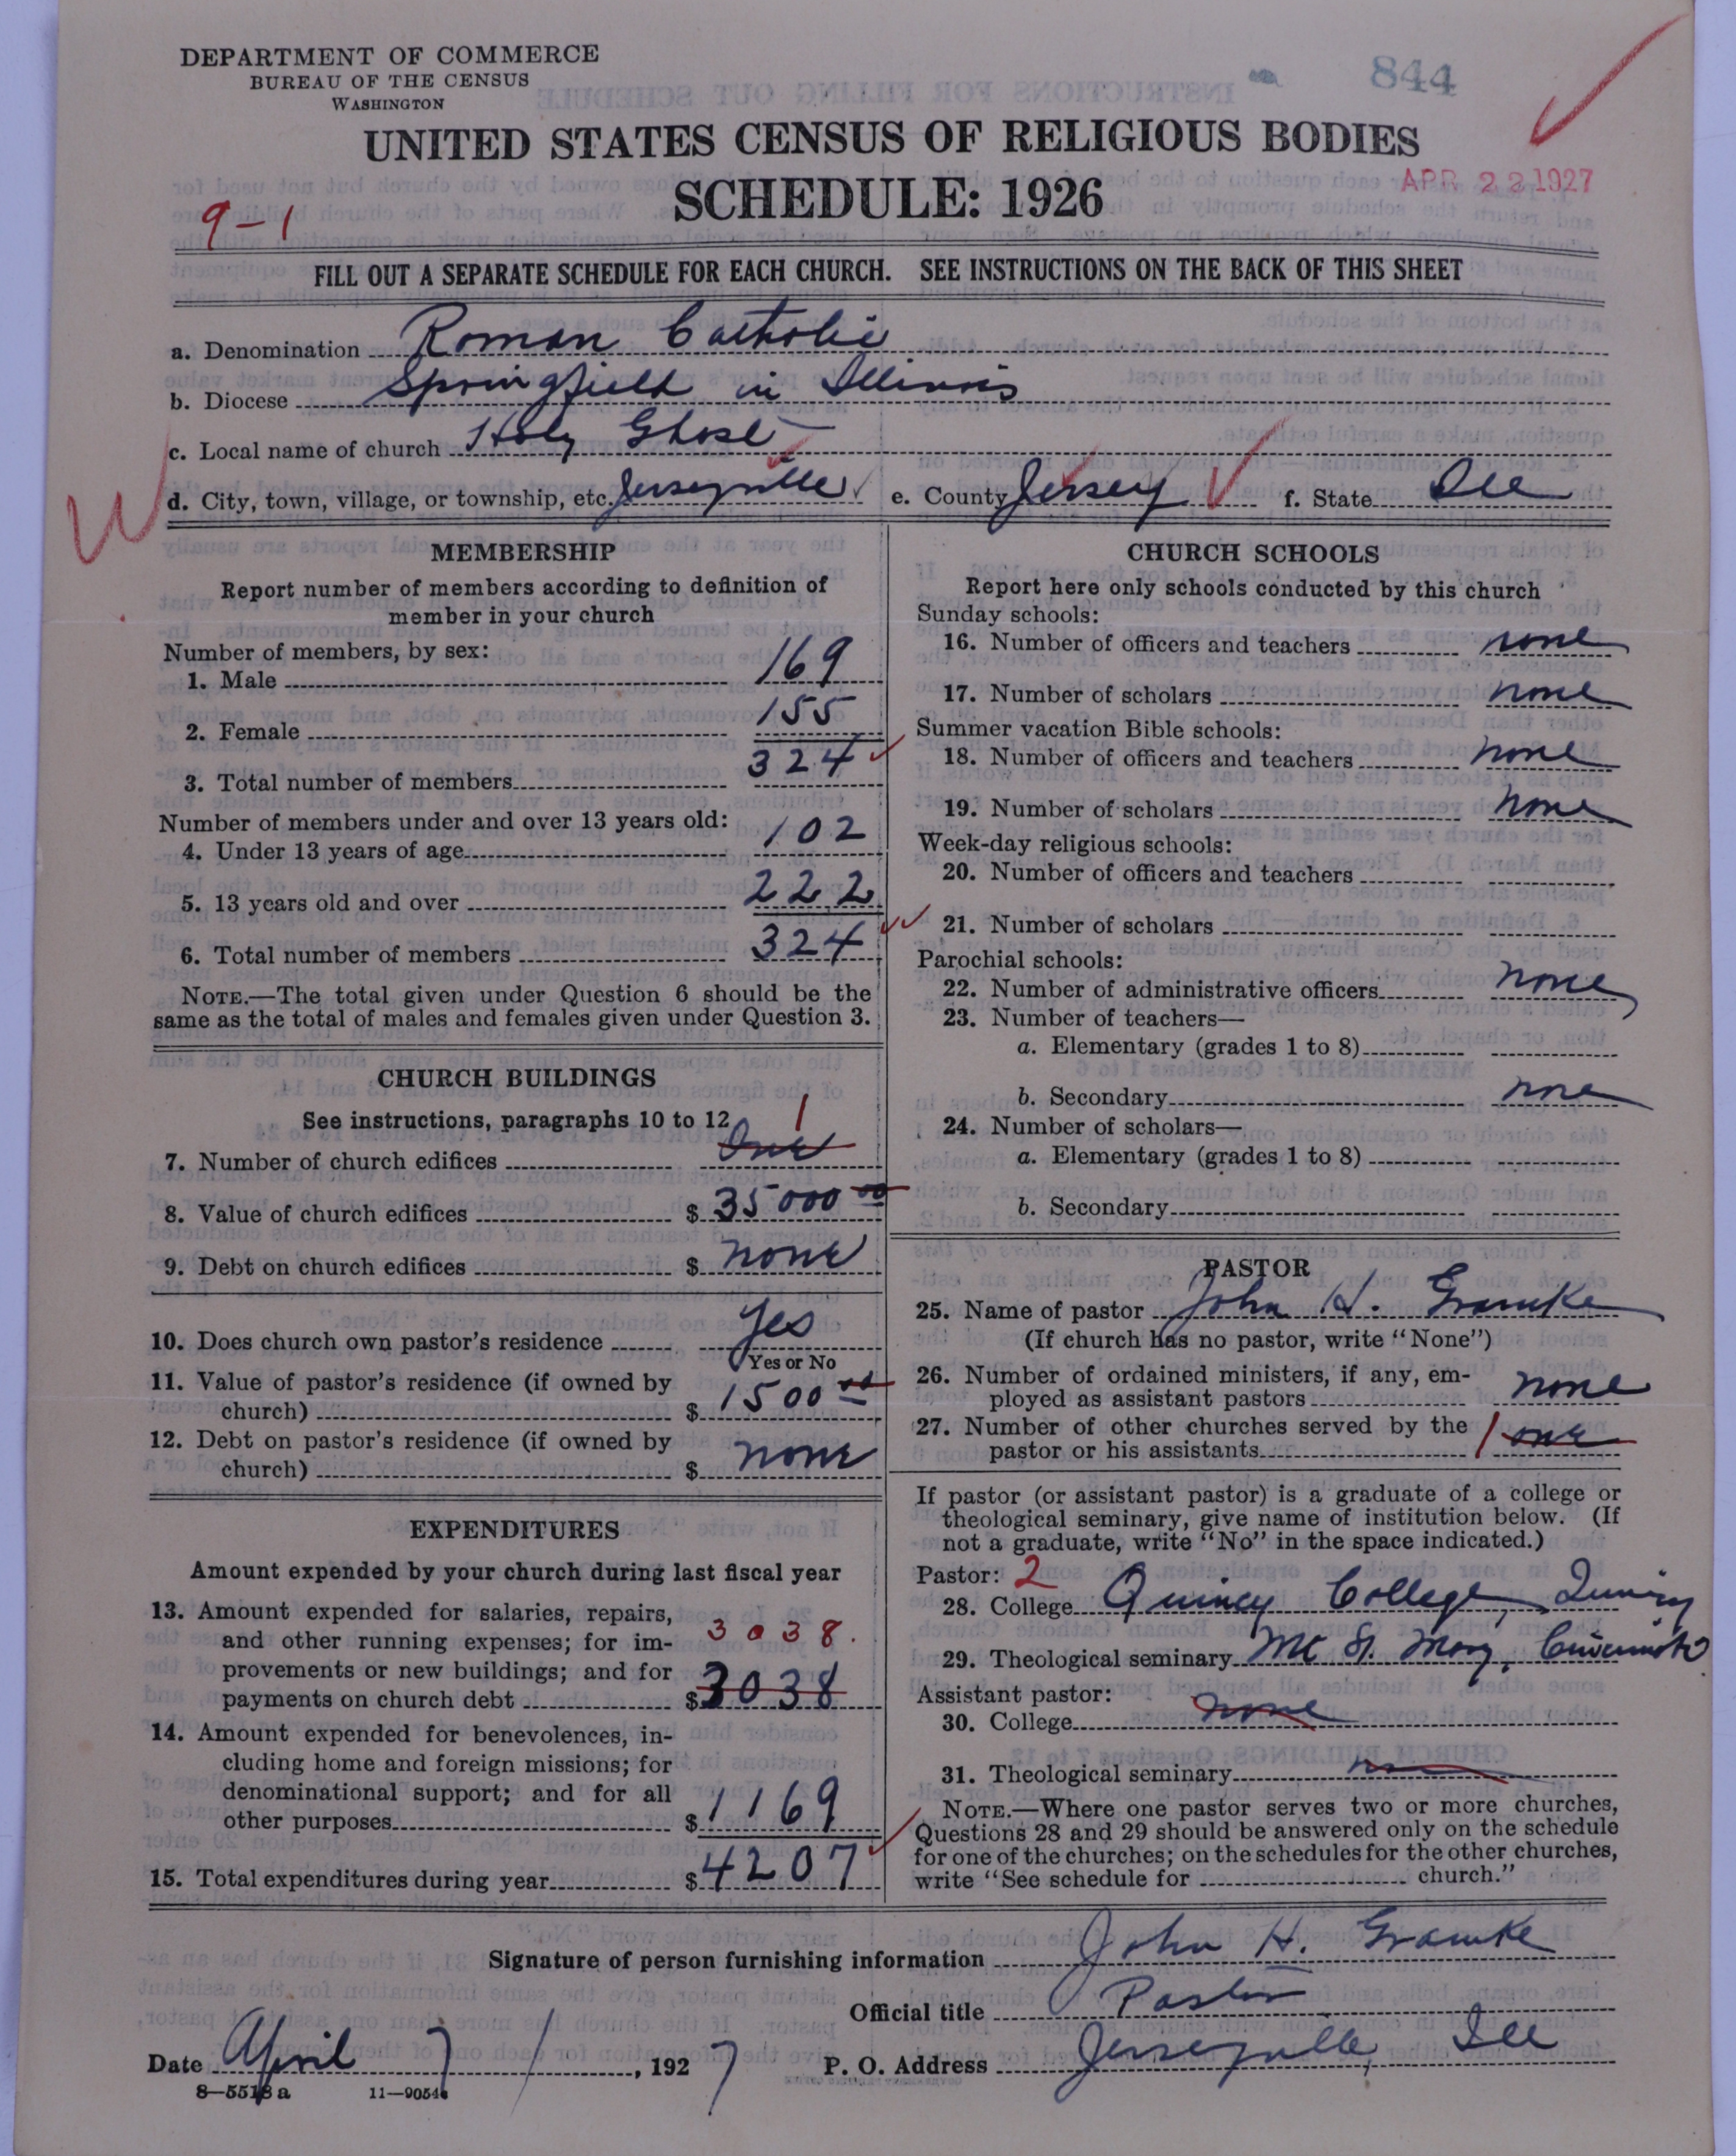 DEPARTMENT OF COMMERCE
BUREAU OF THE CENSUS
WASHINGTON
844
UNITED STATES CENSUS OF RELIGIOUS BODIES
SCHEDULE: 1926
APR 22 1927
9-1
FILL OUT A SEPARATE SCHEDULE FOR EACH CHURCH. SEE INSTRUCTIONS ON THE BACK OF THIS SHEET
a. Denomination Roman Catholic
b. Diocese Springfield in Illinois
c. Local name of church Holy Ghost
d. City, town, village, or township, etc. Jerseyville e. County Jersey f. State Ill
MEMBERSHIP
Report number of members according to definition of
member in your church
Number of members, by sex:
1. Male 169
2. Female 155
3. Total number of members 324
Number of members under and over 13 years old:
4. Under 13 years of age 102
5. 13 years old and over 222
6. Total number of members 324
NOTE.—The total given under Question 6 should be the
same as the total of males and females given under Question 3.
CHURCH BUILDINGS
See instructions, paragraphs 10 to 12
1
7. Number of church edifices One
8. Value of church edifices $ 35000 00
9. Debt on church edifices $ none
10. Does church own pastor's residence Yes
Yes or No
11. Value of pastor's residence (if owned by
church) $ 1500 00
12. Debt on pastor's residence (if owned by
church) $ none
EXPENDITURES
Amount expended by your church during last fiscal year
13. Amount expended for salaries, repairs,
and other running expenses; for im- 3038.
provements or new buildings; and for
payments on church debt $ 3038
14. Amount expended for benevolences, in-
cluding home and foreign missions; for
denominational support; and for all
other purposes $ 1169
15. Total expenditures during year $ 4207
CHURCH SCHOOLS
Report here only schools conducted by this church
Sunday schools:
16. Number of officers and teachers none
17. Number of scholars none
Summer vacation Bible schools:
18. Number of officers and teachers none
19. Number of scholars none
Week-day religious schools:
20. Number of officers and teachers
21. Number of scholars
Parochial schools:
22. Number of administrative officers none
23. Number of teachers—
a. Elementary (grades 1 to 8)
b. Secondary none
24. Number of scholars—
a. Elementary (grades 1 to 8)
b. Secondary
PASTOR
25. Name of pastor John H. Gramke
(If church has no pastor, write "None")
26. Number of ordained ministers, if any, em-
ployed as assistant pastors none
27. Number of other churches served by the
pastor or his assistants 1 one
If pastor (or assistant pastor) is a graduate of a college or
theological seminary, give name of institution below. (If
not a graduate, write "No" in the space indicated.)
Pastor: 2
28. College Quincy College, Quincy
29. Theological seminary Mt St. Mary, Cincinnati O
Assistant pastor:
30. College none
31. Theological seminary
NOTE.—Where one pastor serves two or more churches,
Questions 28 and 29 should be answered only on the schedule
for one of the churches; on the schedules for the other churches,
write "See schedule for church."
Signature of person furnishing information John H. Gramke
Official title Pastor
Date April 7, 1927 P. O. Address Jerseyville, Ill
8-5518 a 11-9054